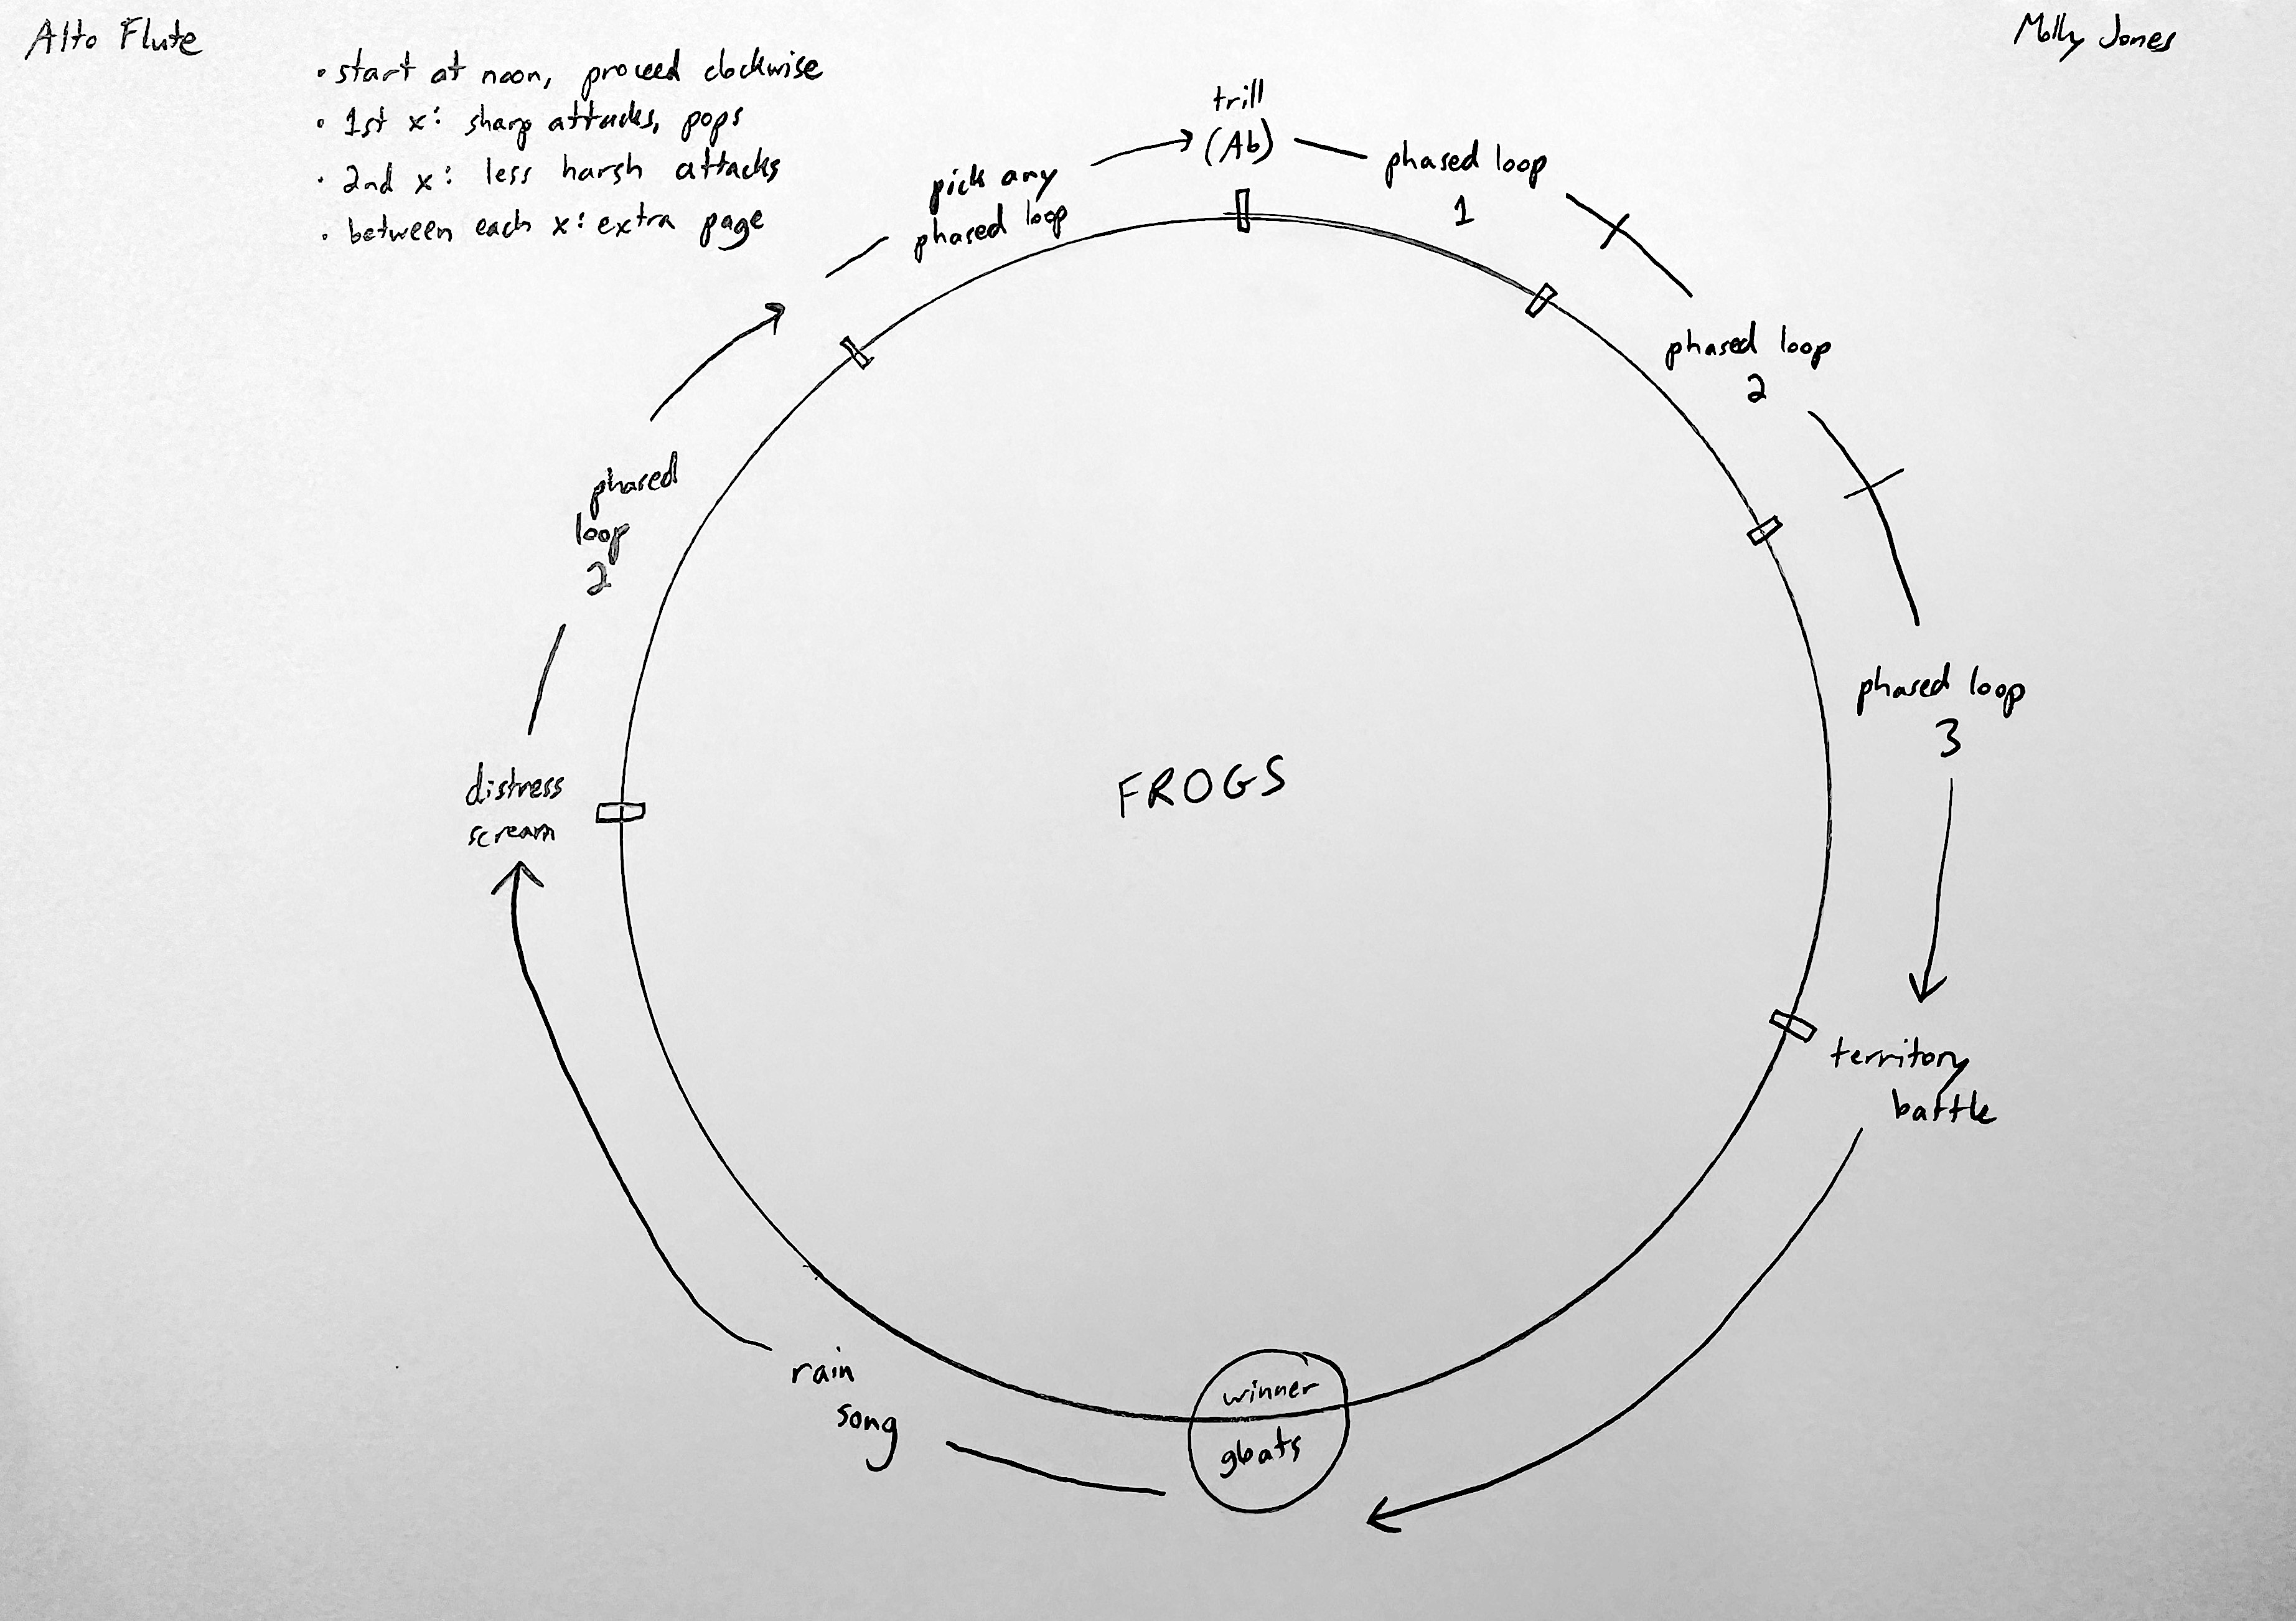 Alto Flute
Molly Jones
• start at noon, proceed clockwise
• 1st x: sharp attacks, pops
• 2nd x: less harsh attacks
• between each x: extra page
trill
(Ab)
phased loop
1
phased loop
2
phased loop
3
territory
battle
winner
gloats
rain
song
distress
scream
phased
loop
2
pick any
phased loop
FROGS